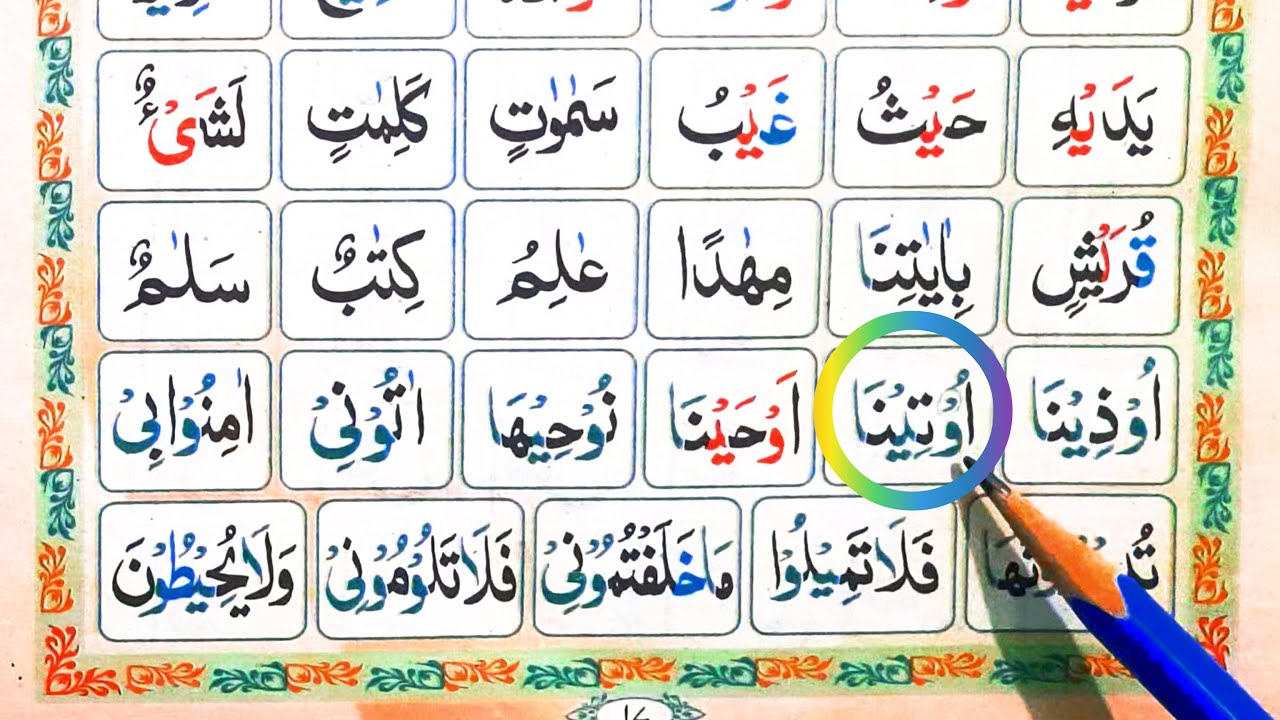 يَدَيْهِ حَيْثُ غَيْبُ سَمٰوٰتٍ كَلِمٰتٍ لَشَيْءٌ
قُرَيْشٍ بِاٰيٰتِنَا مِهٰدًا عٰلِمُ كِتٰبٌ سَلٰمٌ
اُوْذِيْنَا اُوْتِيْنَا اَوْحَيْنَا نُوْحِيْهَا اٰتُوْنِيْ اٰمِنُوْابِيْ
فَلَا تَمِيْلُوْا مَا خَلَفْتُمُوْنِيْ فَلَا تَلُوْمُوْنِيْ وَلَا يُحِيْطُوْنَ